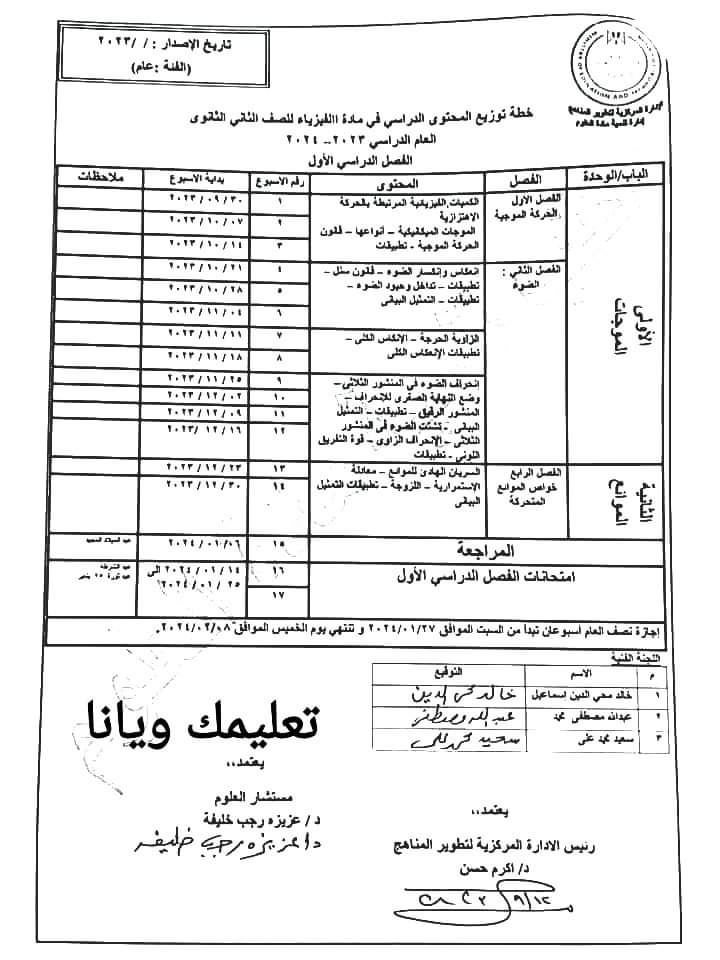 تاريخ الإصدار : / / ٢٠٢٣
(الفئة :عام)
EDUCATION AND
الإدارة المركزية لتطوير المناهج
إدارة تنمية مادة العلوم
خطة توزيع المحتوى الدراسي في مادة الفيزياء للصف الثاني الثانوى
العام الدراسي ٢٠٢٣-- ٢٠٢٤
الفصل الدراسي الأول
الباب/الوحدة الفصل المحتوى رقم الأسبوع بداية الأسبوع ملاحظات
الأولى
الموجات
الفصل الأول
الحركة الموجية
الكميات الفيزيائية المرتبطة بالحركة
الاهتزازية
الموجات الميكانيكية – أنواعها – قانون
الحركة الموجية - تطبيقات
١ ٣٠ / ٠٩ / ٢٠٢٣
٢ ٠٧ / ١٠ / ٢٠٢٣
٣ ١٤ / ١٠ / ٢٠٢٣
الفصل الثاني :
الضوء
انعكاس وإنكسار الضوء – قانون سنل –
تطبيقات – تداخل وحيود الضوء –
تطبيقات – التمثيل البيانى
٤ ٢١ / ١٠ / ٢٠٢٣
٥ ٢٨ / ١٠ / ٢٠٢٣
٦ ٠٤ / ١١ / ٢٠٢٣
الزاوية الحرجة – الإنعكاس الكلى –
تطبيقات الإنعكاس الكلى
٧ ١١ / ١١ / ٢٠٢٣
٨ ١٨ / ١١ / ٢٠٢٣
إنحراف الضوء في المنشور الثلاثى –
وضع النهاية الصغرى للإنحراف –
المنشور الرقيق – تطبيقات – التمثيل
البيانى – تشتت الضوء فى المنشور
الثلاثى – الإنحراف الزاوى – قوة التفريق
اللونى – تطبيقات
٩ ٢٥ / ١١ / ٢٠٢٣
١٠ ٠٢ / ١٢ / ٢٠٢٣
١١ ٠٩ / ١٢ / ٢٠٢٣
١٢ ١٦ / ١٢ / ٢٠٢٣
الثانية
الموائع
الفصل الرابع
خواص الموائع
المتحركة
السريان الهادئ للموائع – معادلة
الإستمرارية – اللزوجة – تطبيقات التمثيل
البيانى
١٣ ٢٣ / ١٢ / ٢٠٢٣
١٤ ٣٠ / ١٢ / ٢٠٢٣
المراجعة ١٥ ٢٠٢٤/٠١/٠٦ عيد الميلاد المجيد
امتحانات الفصل الدراسي الأول
١٦ ١٤ / ٠١ / ٢٠٢٤ الى عيد الشرطة
١٧ ٢٥ / ٠١ / ٢٠٢٤ عيد ثورة ٢٥ يناير
إجازة نصف العام أسبوعان تبدأ من السبت الموافق ٢٠٢٤/٠١/٢٧ و تنتهي يوم الخميس الموافق ٢٠٢٤/٠٢/٠٨.
اللجنة الفنية
م الاسم التوقيع
١ خالد محي الدين اسماعيل خالد محي الدين
٢ عبدالله مصطفى محمد عبد الله مصطفى
٣ سعيد محمد على سعيد محمد على
تعليمك ويانا
يعتمد،،
مستشار العلوم
د/ عزيزه رجب خليفة
د/ عزيزه رجب خليفه
يعتمد،،
رئيس الادارة المركزية لتطوير المناهج
د/ اكرم حسن